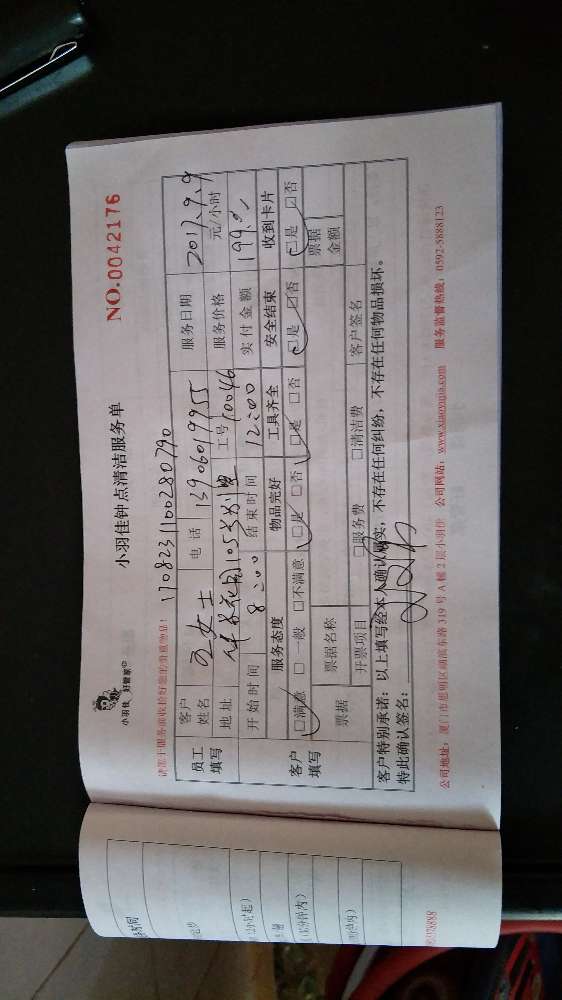 小羽佳 好管家
小羽佳钟点清洁服务单
NO.0042176
请您于服务前收拾好您的贵重物品!
170823110028079０
员工填写 客户姓名 女士 电话 13906019955 服务日期 2017.9.9
地址 花园105号别墅 工号 10046 服务价格 元/小时
开始时间 8:00 结束时间 12:00 实付金额 199.00
客户填写 服务态度 物品完好 工具齐全 安全结束 收到卡片
☑满意 □一般 □不满意 ☑是 □否 ☑是 □否 ☑是 □否 ☑是 □否
票据 票据名称 票据金额
开票项目 □服务费 □清洁费 客户签名
客户特别承诺:以上填写经本人确认属实,不存在任何纠纷,不存在任何物品损坏。
特此确认签名:
公司地址:厦门市思明区湖滨东路 319 号 A 幢 2 层小羽佳 公司网站:www.xiaoyujia.com 服务监督热线:0592-5888123